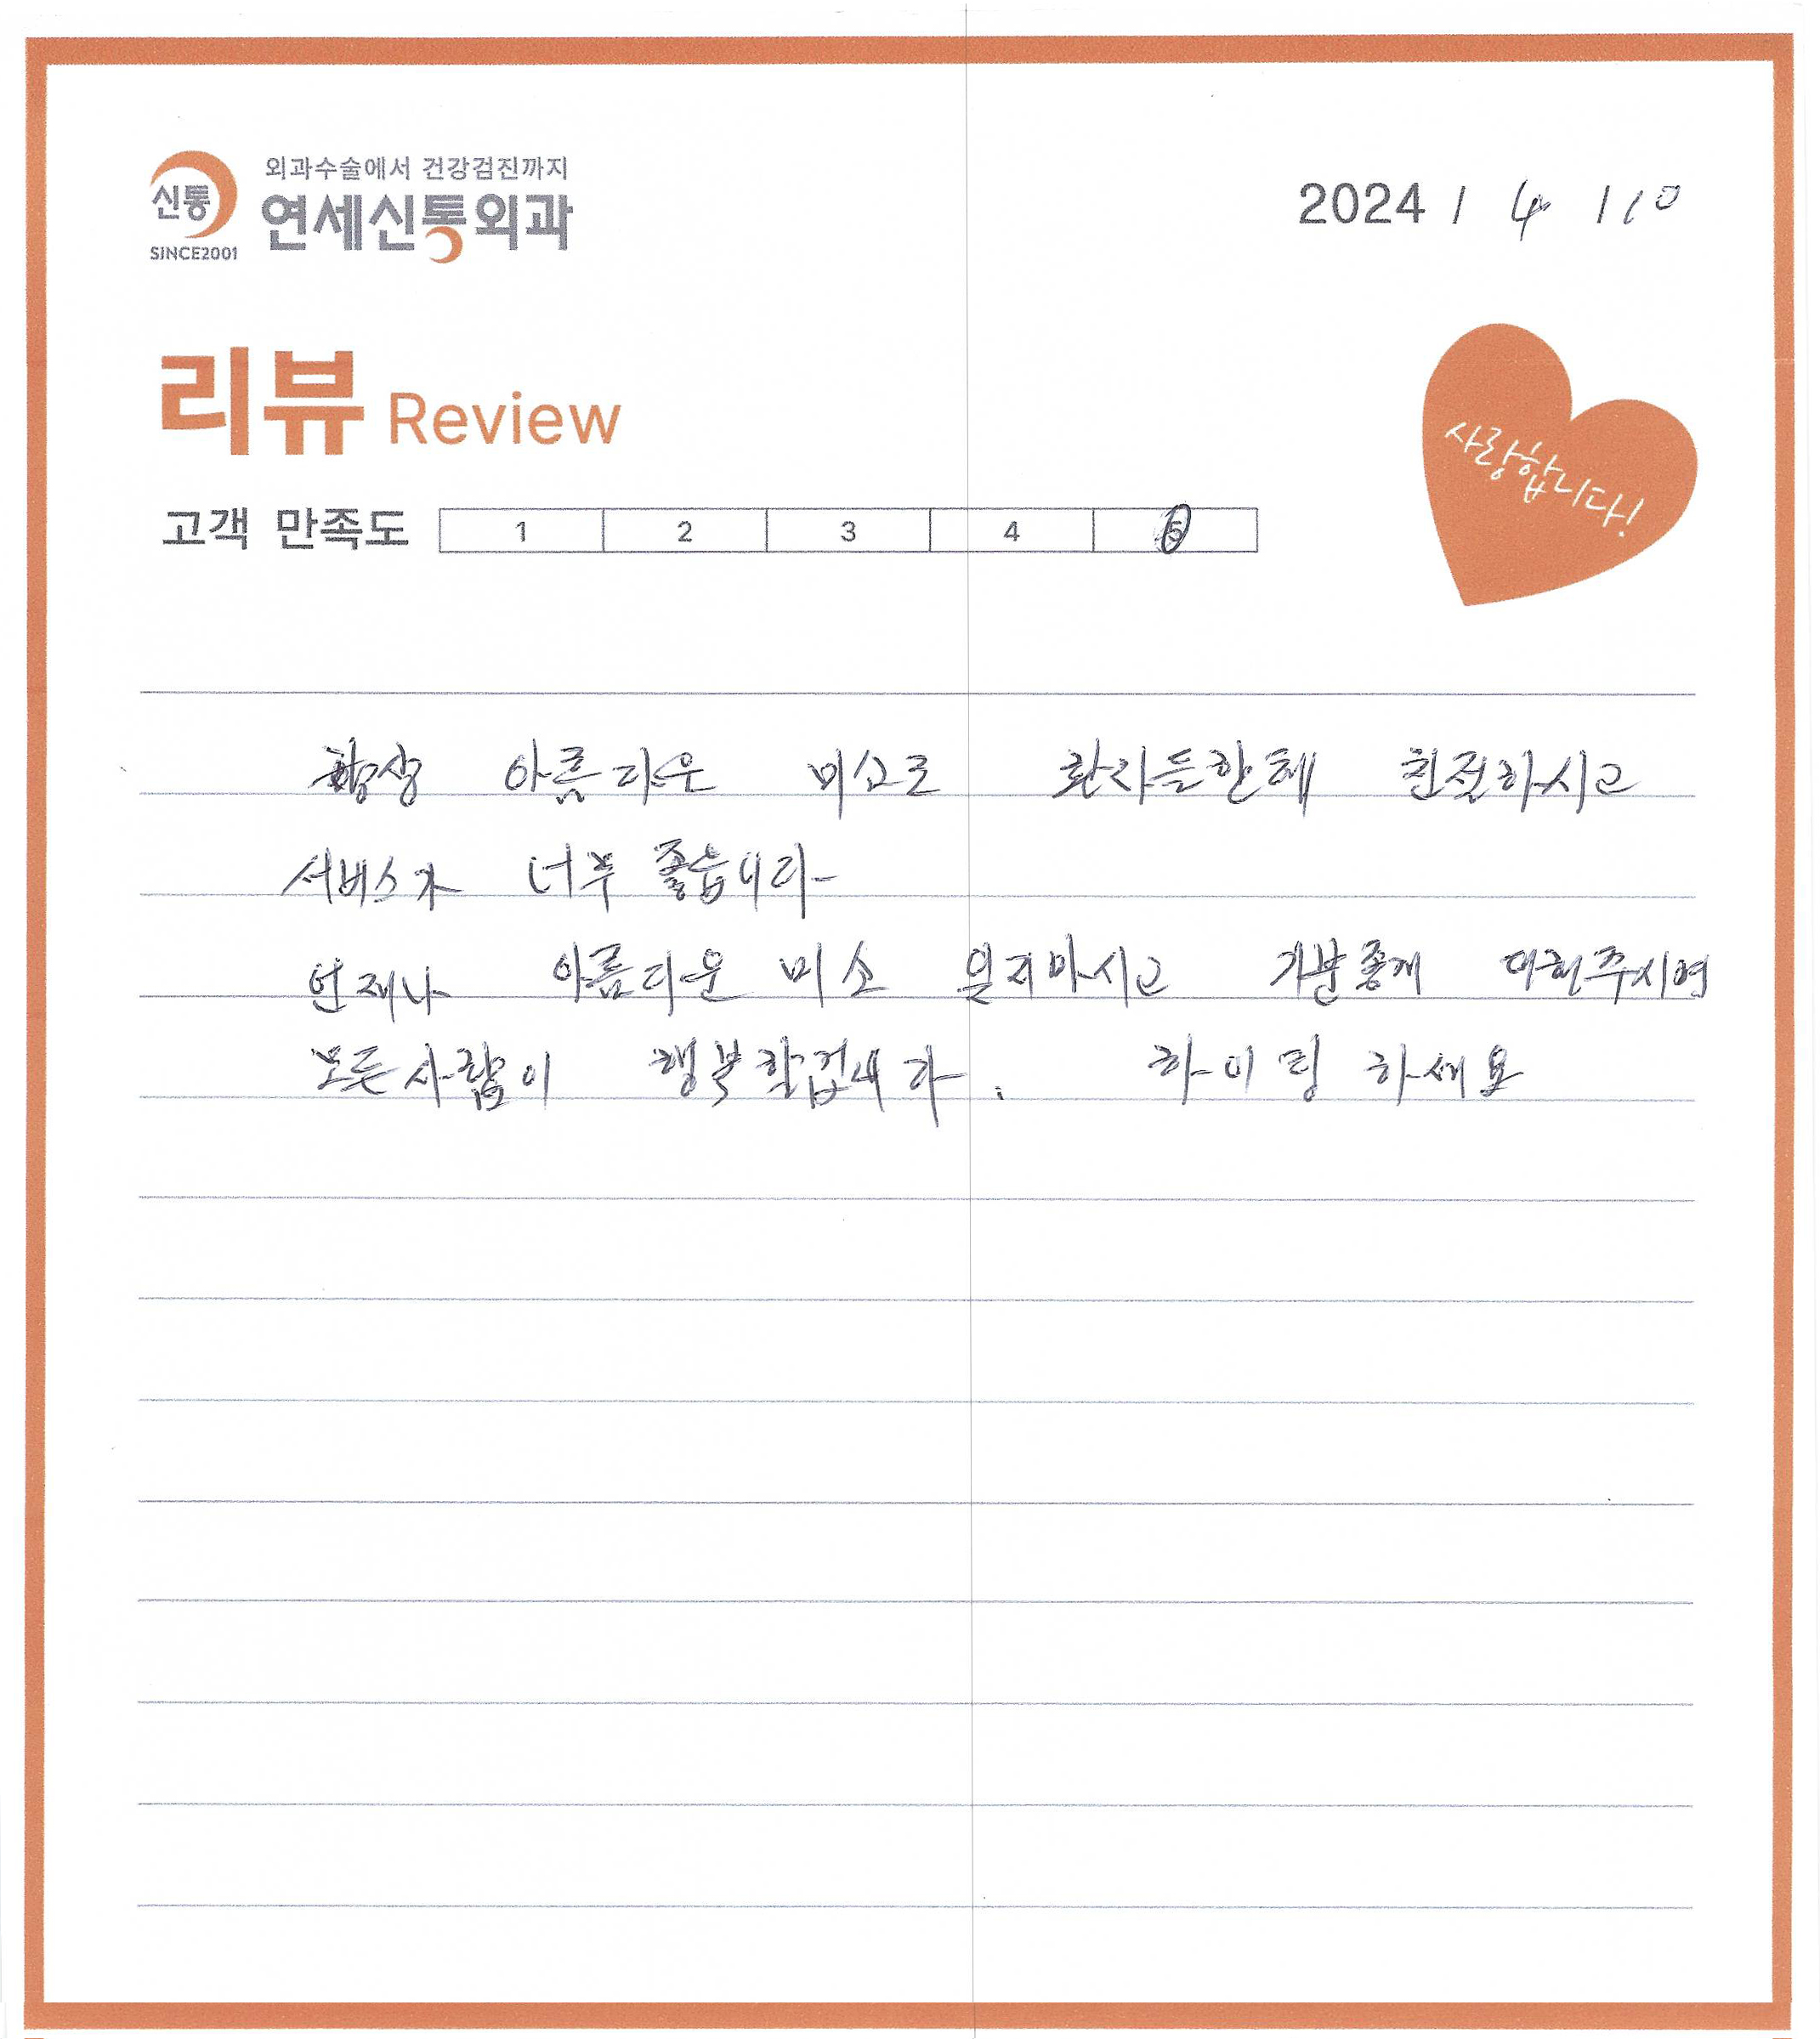 외과수술에서 건강검진까지
신통
연세신통외과
SINCE2001
2024 / 4 / 10
리뷰 Review
사랑합니다!
고객 만족도 1 2 3 4 5
항상 아름다운 미소로 환자들한테 친절하시고
서비스가 너무 좋읍니다
언제나 아름다운 미소 잃지마시고 기분좋게 대해주시며
모든사람이 행복할겁니다. 화이팅 하세요